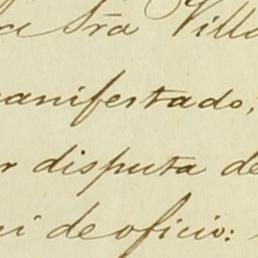 sta Villa
manifestado,
r disputa de
ni de oficio: